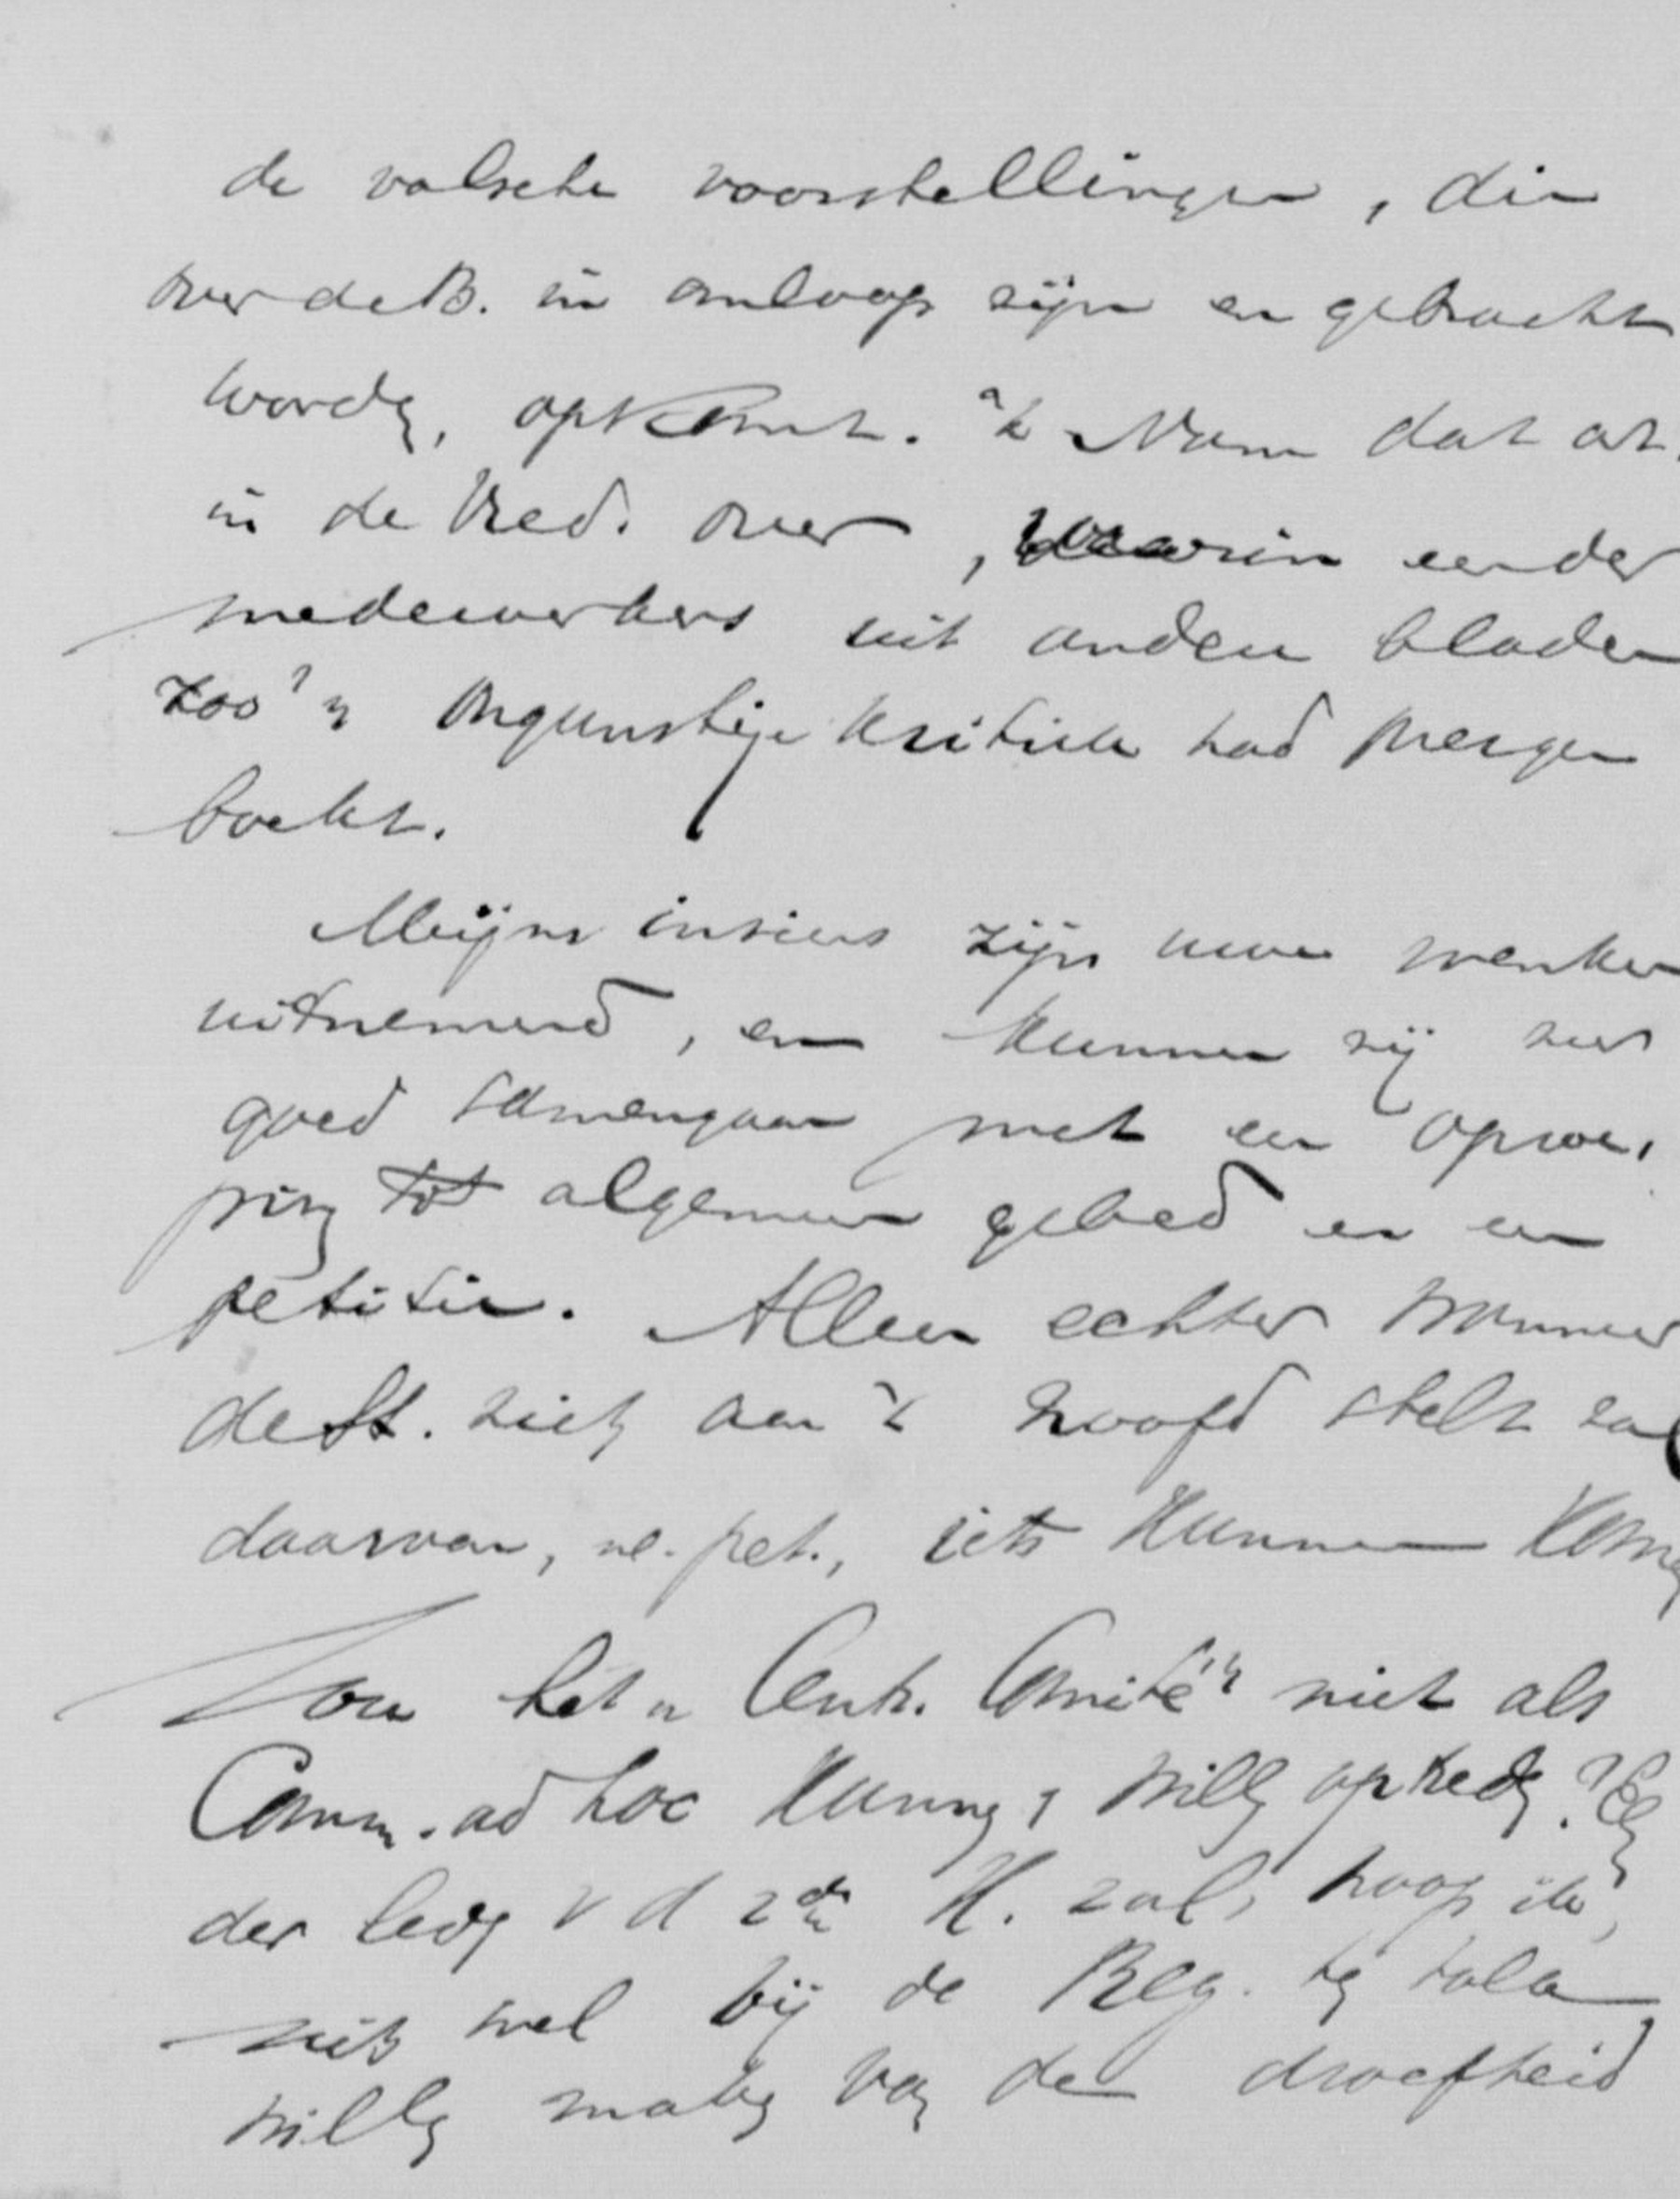 de valsche voorstellingen, die
over de B. in omloop zijn en gebracht
worden, opkomt. 'k Nam dat art.
in de Med. over, waarin een der
medewerkers uit andere bladen
zoo'n ongunstige kritiek had
boekt.
Mijns inziens zijn uwe wenken
uitnemend, en kunnen zij zeer
goed samengaan met een oproe-
ping tot algemeen gebed en een
petitie. Alleen echter wanneer
de St. zich aan 't hoofd stelt zal
daarvan, nl. pet., iets kunnen komen
Zou het „Centr. Comité" niet als
Comm. ad hoc kunnen, willen optreden? Een
der leden v d 2de K. zal, hoop ik,
zich wel bij de Reg. tot tolk
willen maken van de droefheid